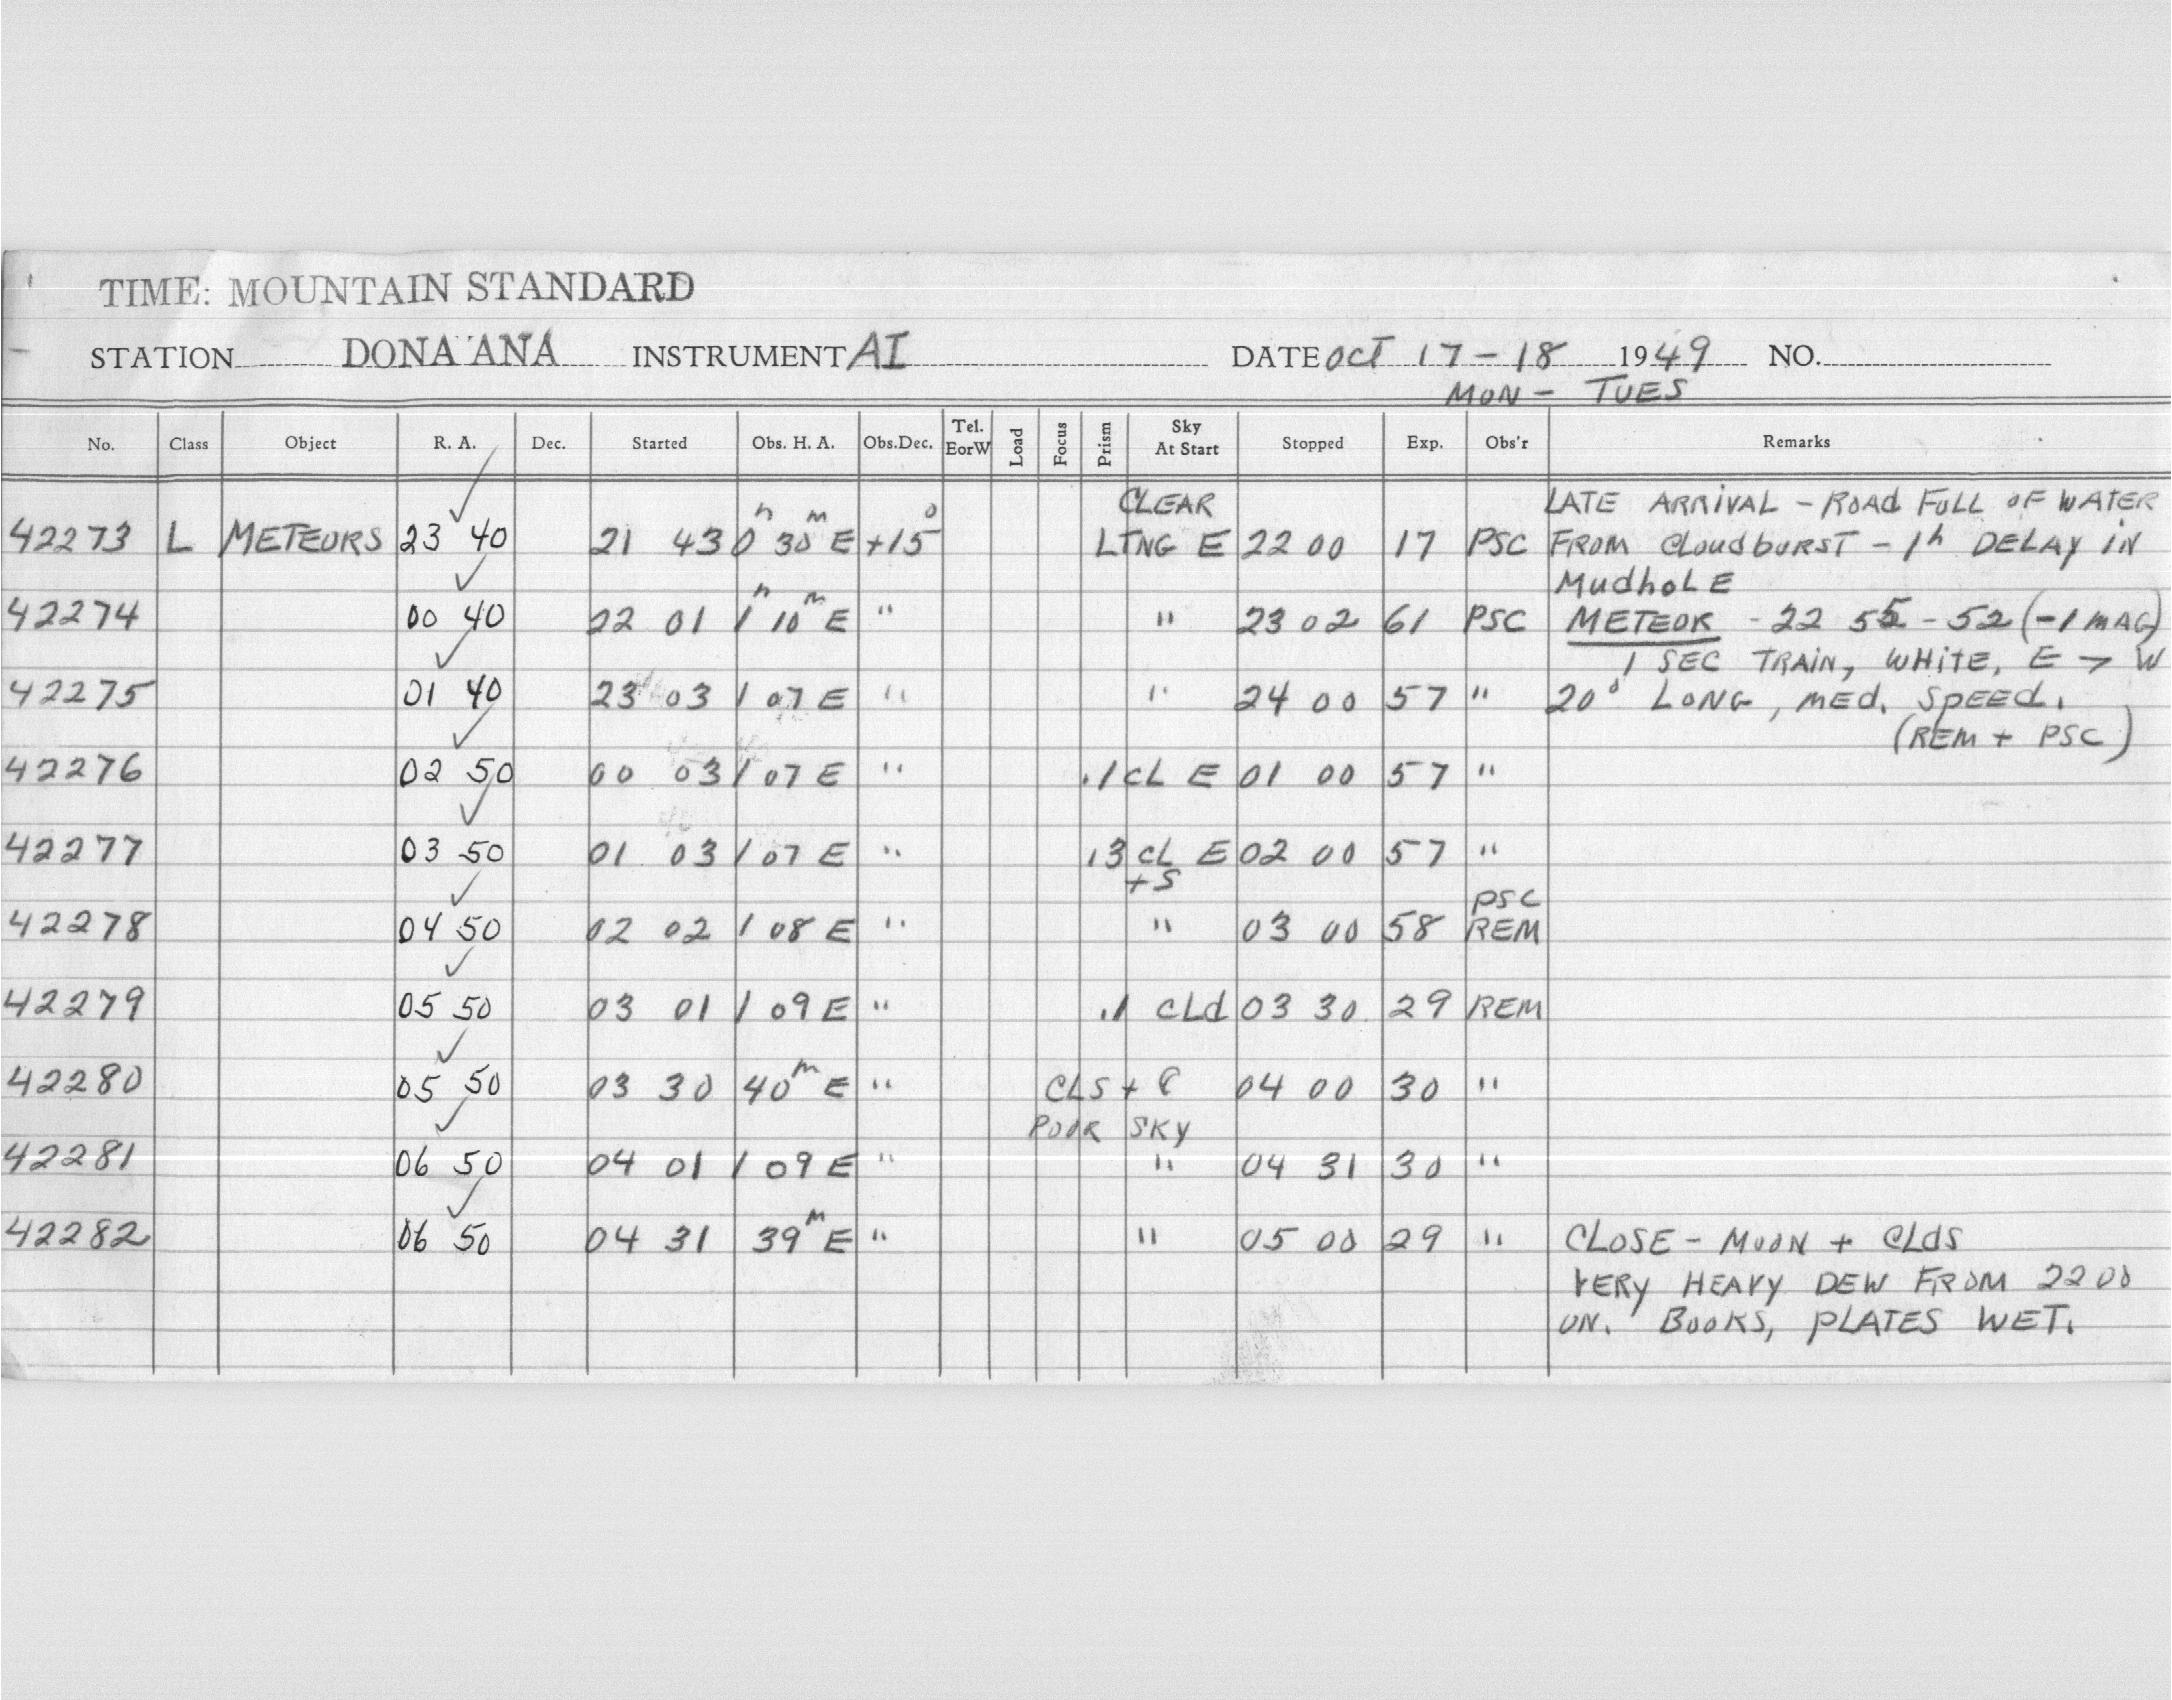 TIME: MOUNTAIN STANDARD
STATION DONA ANA INSTRUMENT AI DATE OCT 17-18 1949 NO.
MON - TUES
No. Class Object R. A. Dec. Started Obs. H. A. Obs.Dec. Tel. EorW Load Focus Prism Sky At Start Stopped Exp. Obs'r Remarks
CLEAR LATE ARRIVAL - ROAD FULL OF WATER
42273 L METEORS 23 40 21 43 0h 30m E +15° LTNG E 22 00 17 PSC FROM CLOUDBURST - 1h DELAY IN
MUDHOLE
42274 00 40 22 01 1h 10m E " " 23 02 61 PSC METEOR - 22 55 - 52 (-1 MAG)
1 SEC TRAIN, WHITE, E → W
42275 01 40 23 03 1 07 E " " 24 00 57 " 20° LONG, MED. SPEED.
(REM + PSC)
42276 02 50 00 03 1 07 E " .1 CL E 01 00 57 "
42277 03 50 01 03 1 07 E " .3 CL E 02 00 57 "
+ S
PSC
42278 04 50 02 02 1 08 E " " 03 00 58 REM
42279 05 50 03 01 1 09 E " .1 CLd 03 30 29 REM
42280 05 50 03 30 40m E " CLS + 04 00 30 "
POOR SKY
42281 06 50 04 01 1 09 E " " 04 31 30 "
42282 06 50 04 31 39m E " " 05 00 29 " CLOSE - MOON + CLdS
VERY HEAVY DEW FROM 2200
ON. BOOKS, PLATES WET.